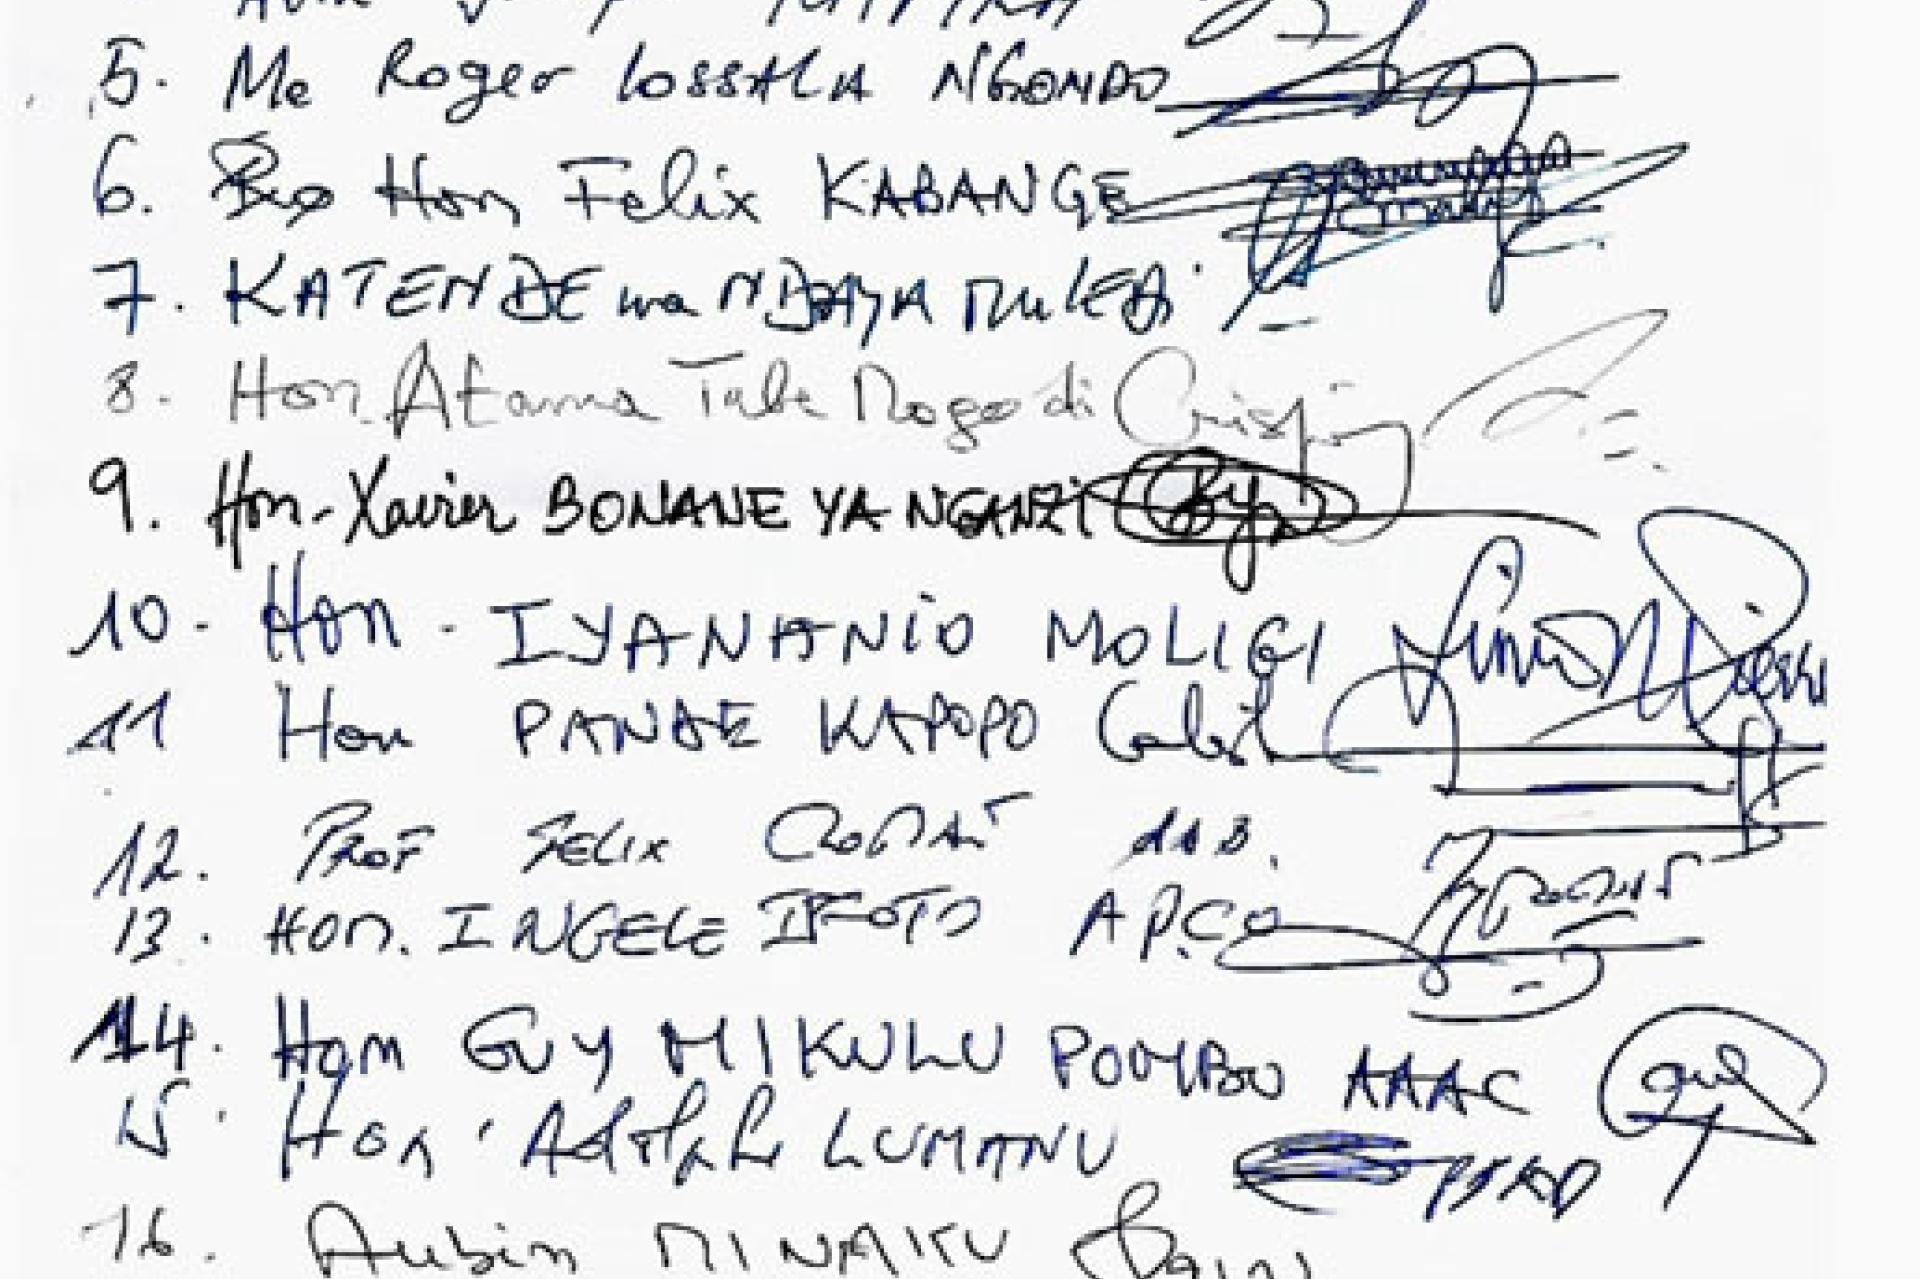 Hon
5. Me Roger LOSSALA NGONDO
6. Hon Felix KABANGE
7. KATENDE wa NDAYA MULEDI
8. Hon. Atama Tabe Mogodi Crispin
9. Hon. Xavier BONANE YA NGANZI
10. Hon. IYANANIO MOLIGI
11 Hon PANDE KAPOPO Celestin
12. PROF FELIX
13. HON. INGELE IFOTO APCO
14. Hon GUY MIKULU POMBO AAAC
15. Hon. Adolphe LUMANU
16. Aubin MINAKU